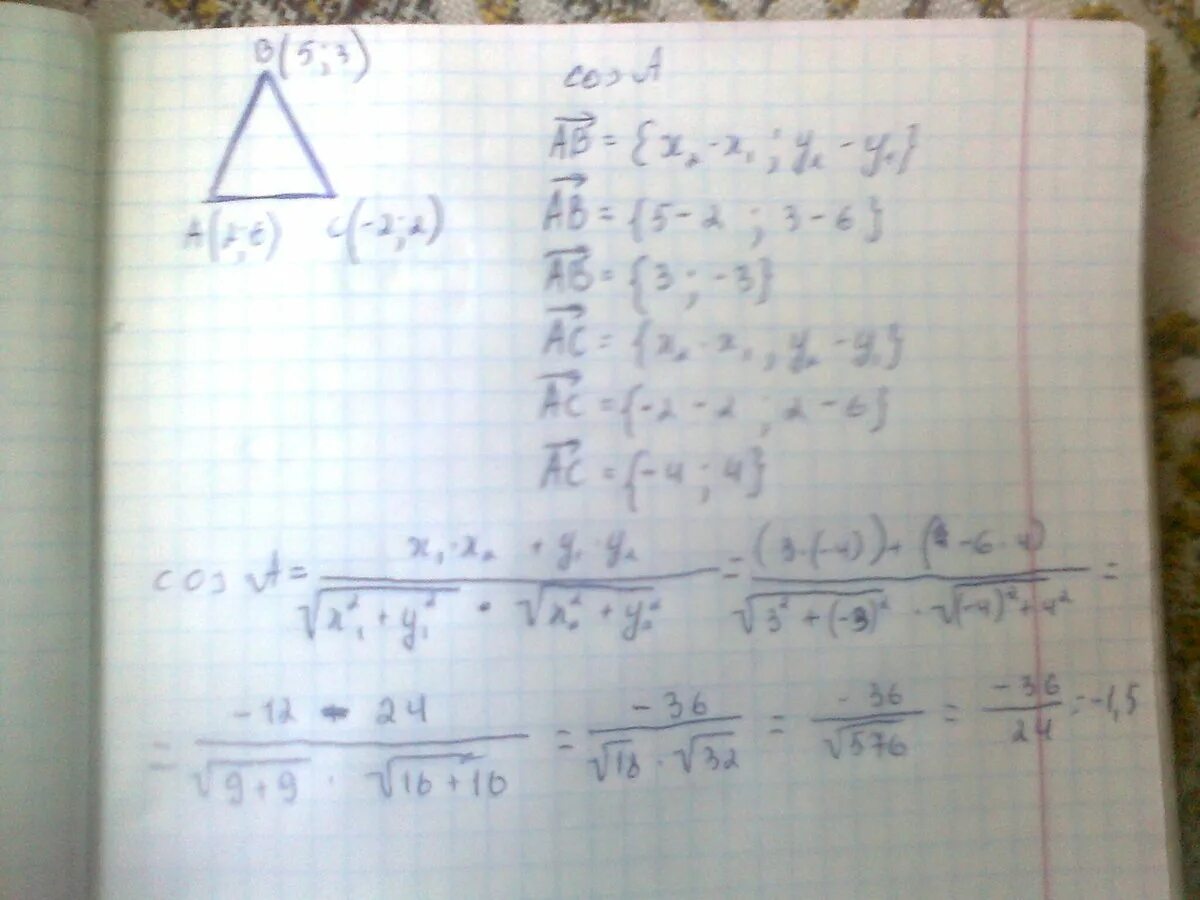 B(5;3)
A(2;6) C(-2;2)
cos A
AB = {x₂ - x₁ ; y₂ - y₁}
AB = {5-2 ; 3-6}
AB = {3 ; -3}
AC = {x₂ - x₁ ; y₂ - y₁}
AC = {-2-2 ; 2-6}
AC = {-4 ; 4}
cos A = (x₁·x₂ + y₁·y₂)/(√(x₁²+y₁²) · √(x₂²+y₂²)) = ((3·(-4))+(-6·4))/(√(3²+(-3)²) · √((-4)²+4²)) =
= (-12 - 24)/(√(9+9) · √(16+16)) = -36/(√18 · √32) = -36/√576 = -36/24 = -1,5